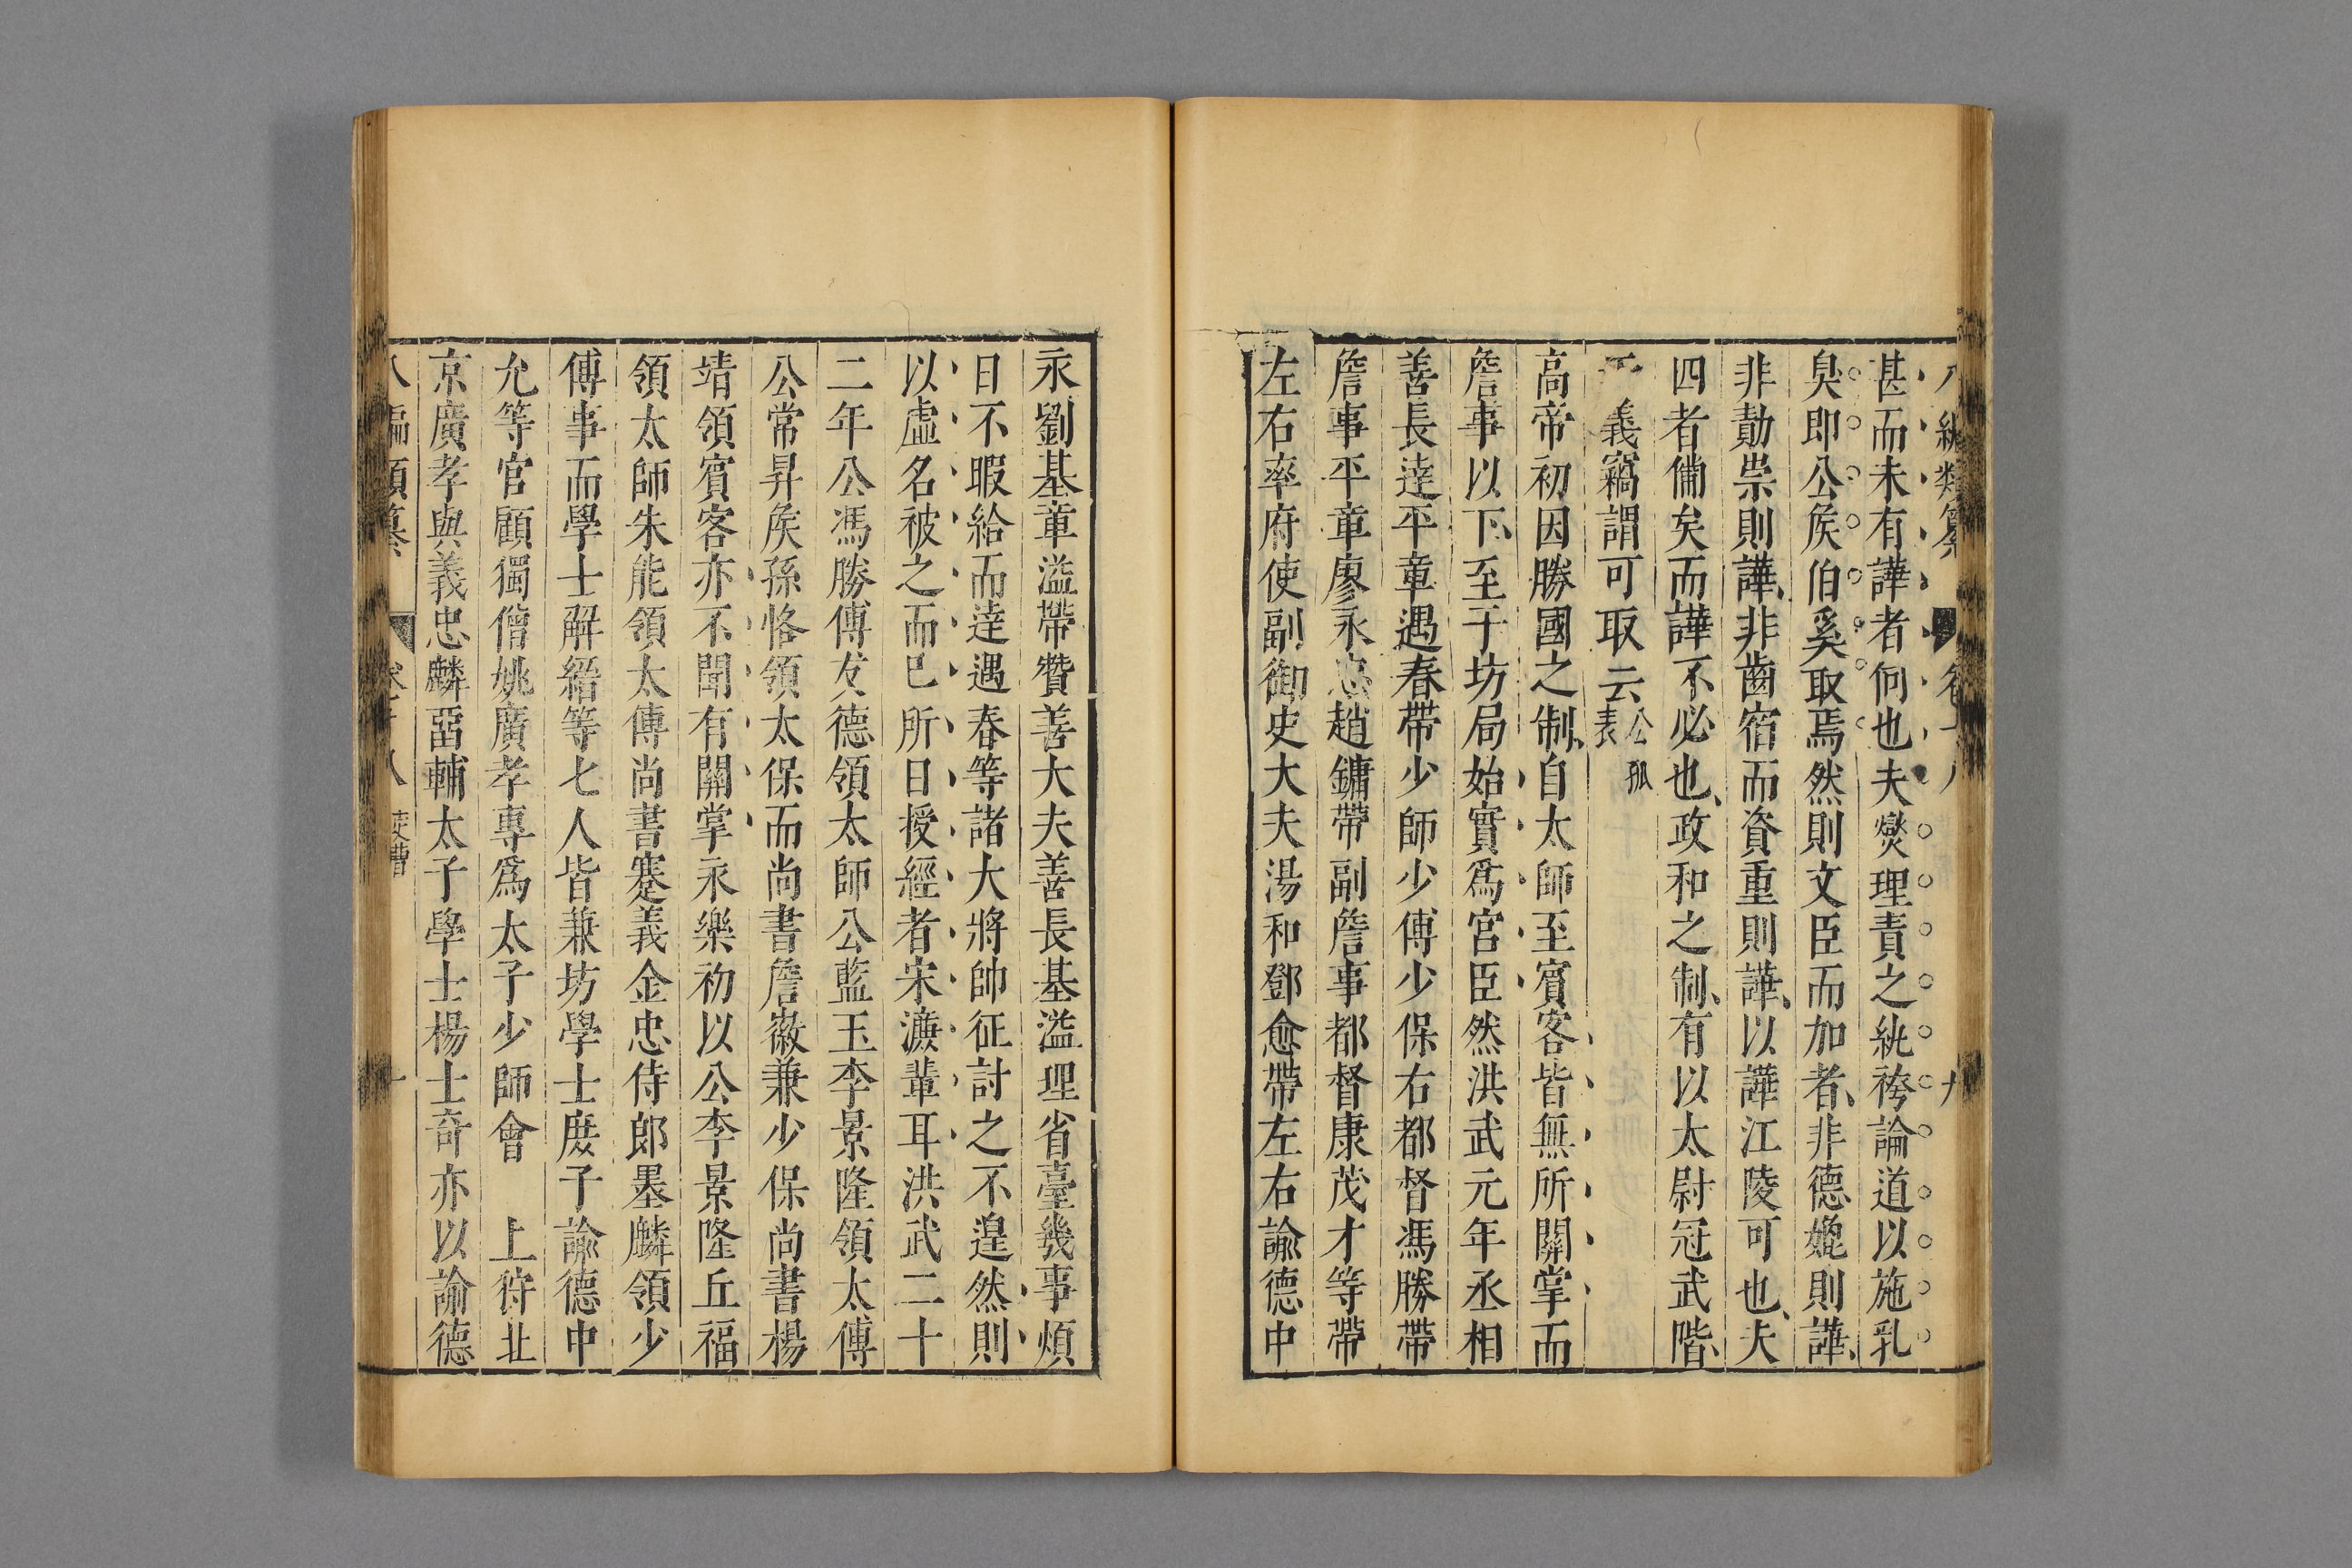 八編類纂 卷一八 九
甚而未有譁者何也夫爕理責之紈袴論道以施乳
臭即公矦伯奚取焉然則文臣而加者非德媲則譁
非勣崇則譁非齒宿而資重則譁以譁江陵可也夫
四者備矣而譁不必也政和之制有以太尉冠武階
義竊謂可取云公孤表
高帝初因勝國之制自太師至賓客皆無所關掌而
詹事以下至于坊局始實爲宮臣然洪武元年丞相
善長逹平章遇春帶少師少傅少保右都督馮勝帶
詹事平章廖永忠趙鏞帶副詹事都督康茂才等帶
左右率府使副御史大夫湯和鄧愈帶左右諭德中
永劉基章溢帶贊善大夫善長基溢理省臺幾事煩
日不暇給而逹遇春等諸大將帥征討之不遑然則
以虛名被之而已所日授經者宋濂輩耳洪武二十
二年公馮勝傅友德領太師公藍玉李景隆領太傅
公常昇矦孫恪領太保而尚書詹徽兼少保尚書楊
靖領賓客亦不聞有關掌永樂初以公李景隆丘福
領太師朱能領太傅尚書蹇義金忠侍郎墨麟領少
傅事而學士解縉等七人皆兼坊學士庶子諭德中
允等官顧獨僧姚廣孝專爲太子少師會 上狩北
京廣孝與義忠麟畱輔太子學士楊士奇亦以諭德
八編類纂 卷十八 吏曹 十